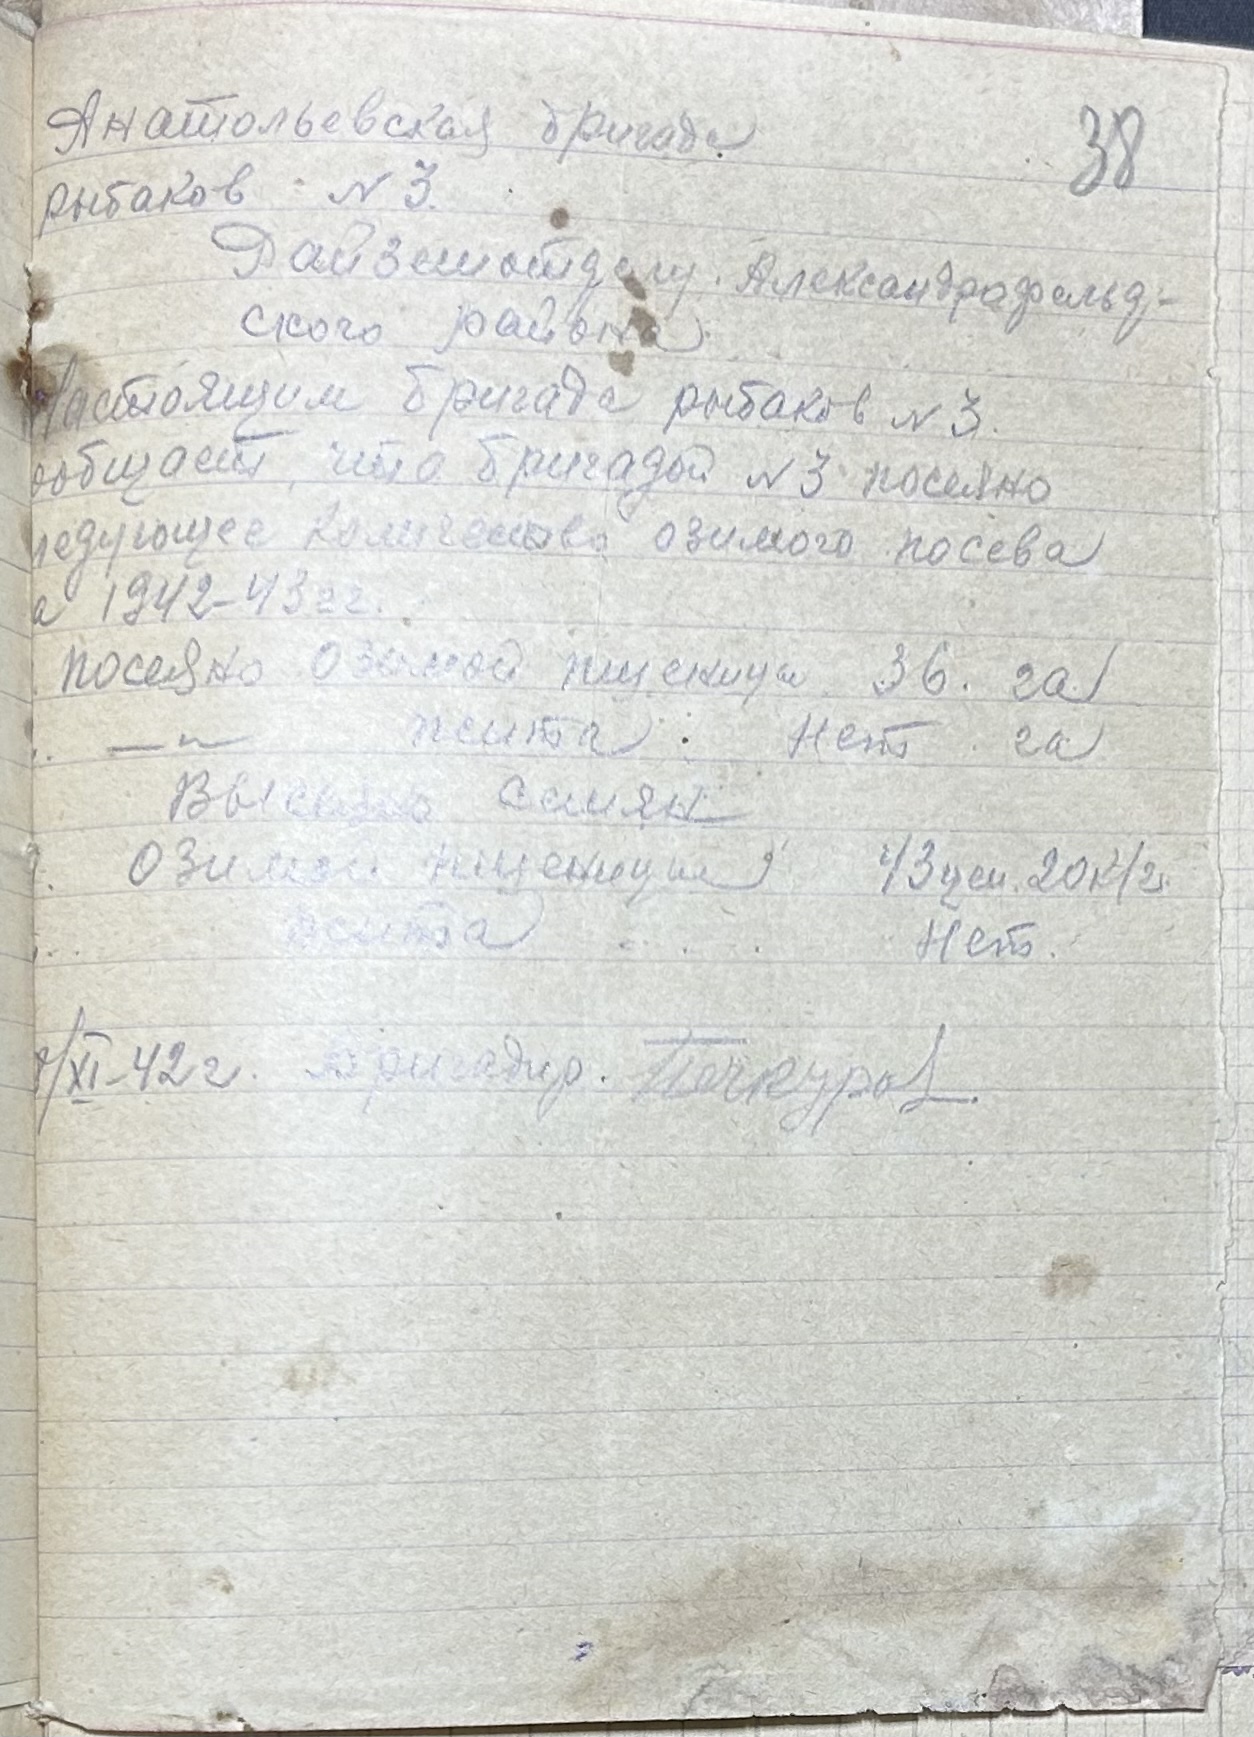 Анатольевская бригада
38
рыбаков N 3.
Райземотделу. Александрафельд-
ского района
Настоящим бригада рыбаков N 3.
ообщает, что бригадой N 3 посеяно
ледующее количество озимого посева
а 1942-43 гг.
посеяно озимой пщеницы 36. га
—"— жита : Нет га
Высеяно семян
озимой пщеницы 43 цен. 20 к/г.
жита . . . Нет.
/XI-42 г. Бригадир. Печкуров